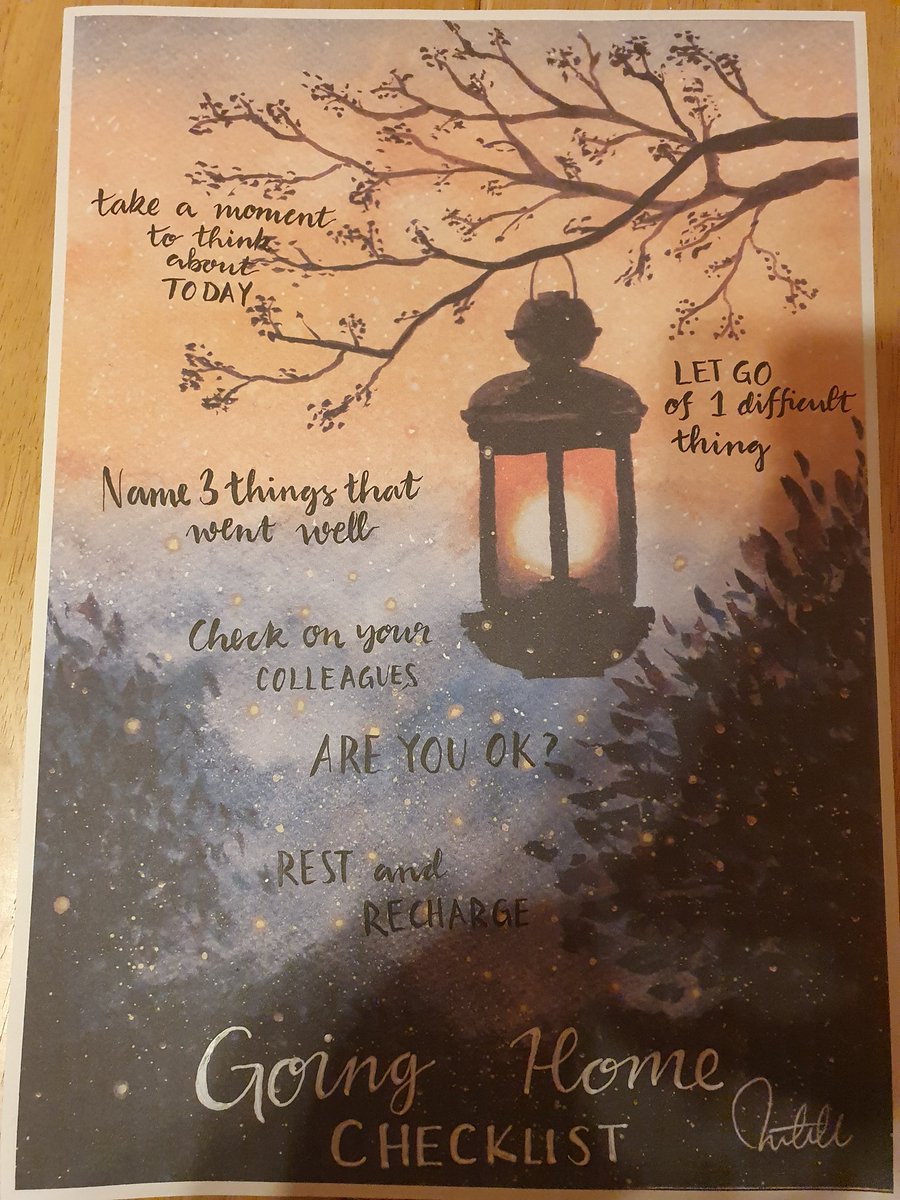 take a moment
to think
about
TODAY
LET GO
of 1 difficult
thing
Name 3 things that
went well
Check on your
COLLEAGUES
ARE YOU OK?
REST and
RECHARGE
Going Home
CHECKLIST